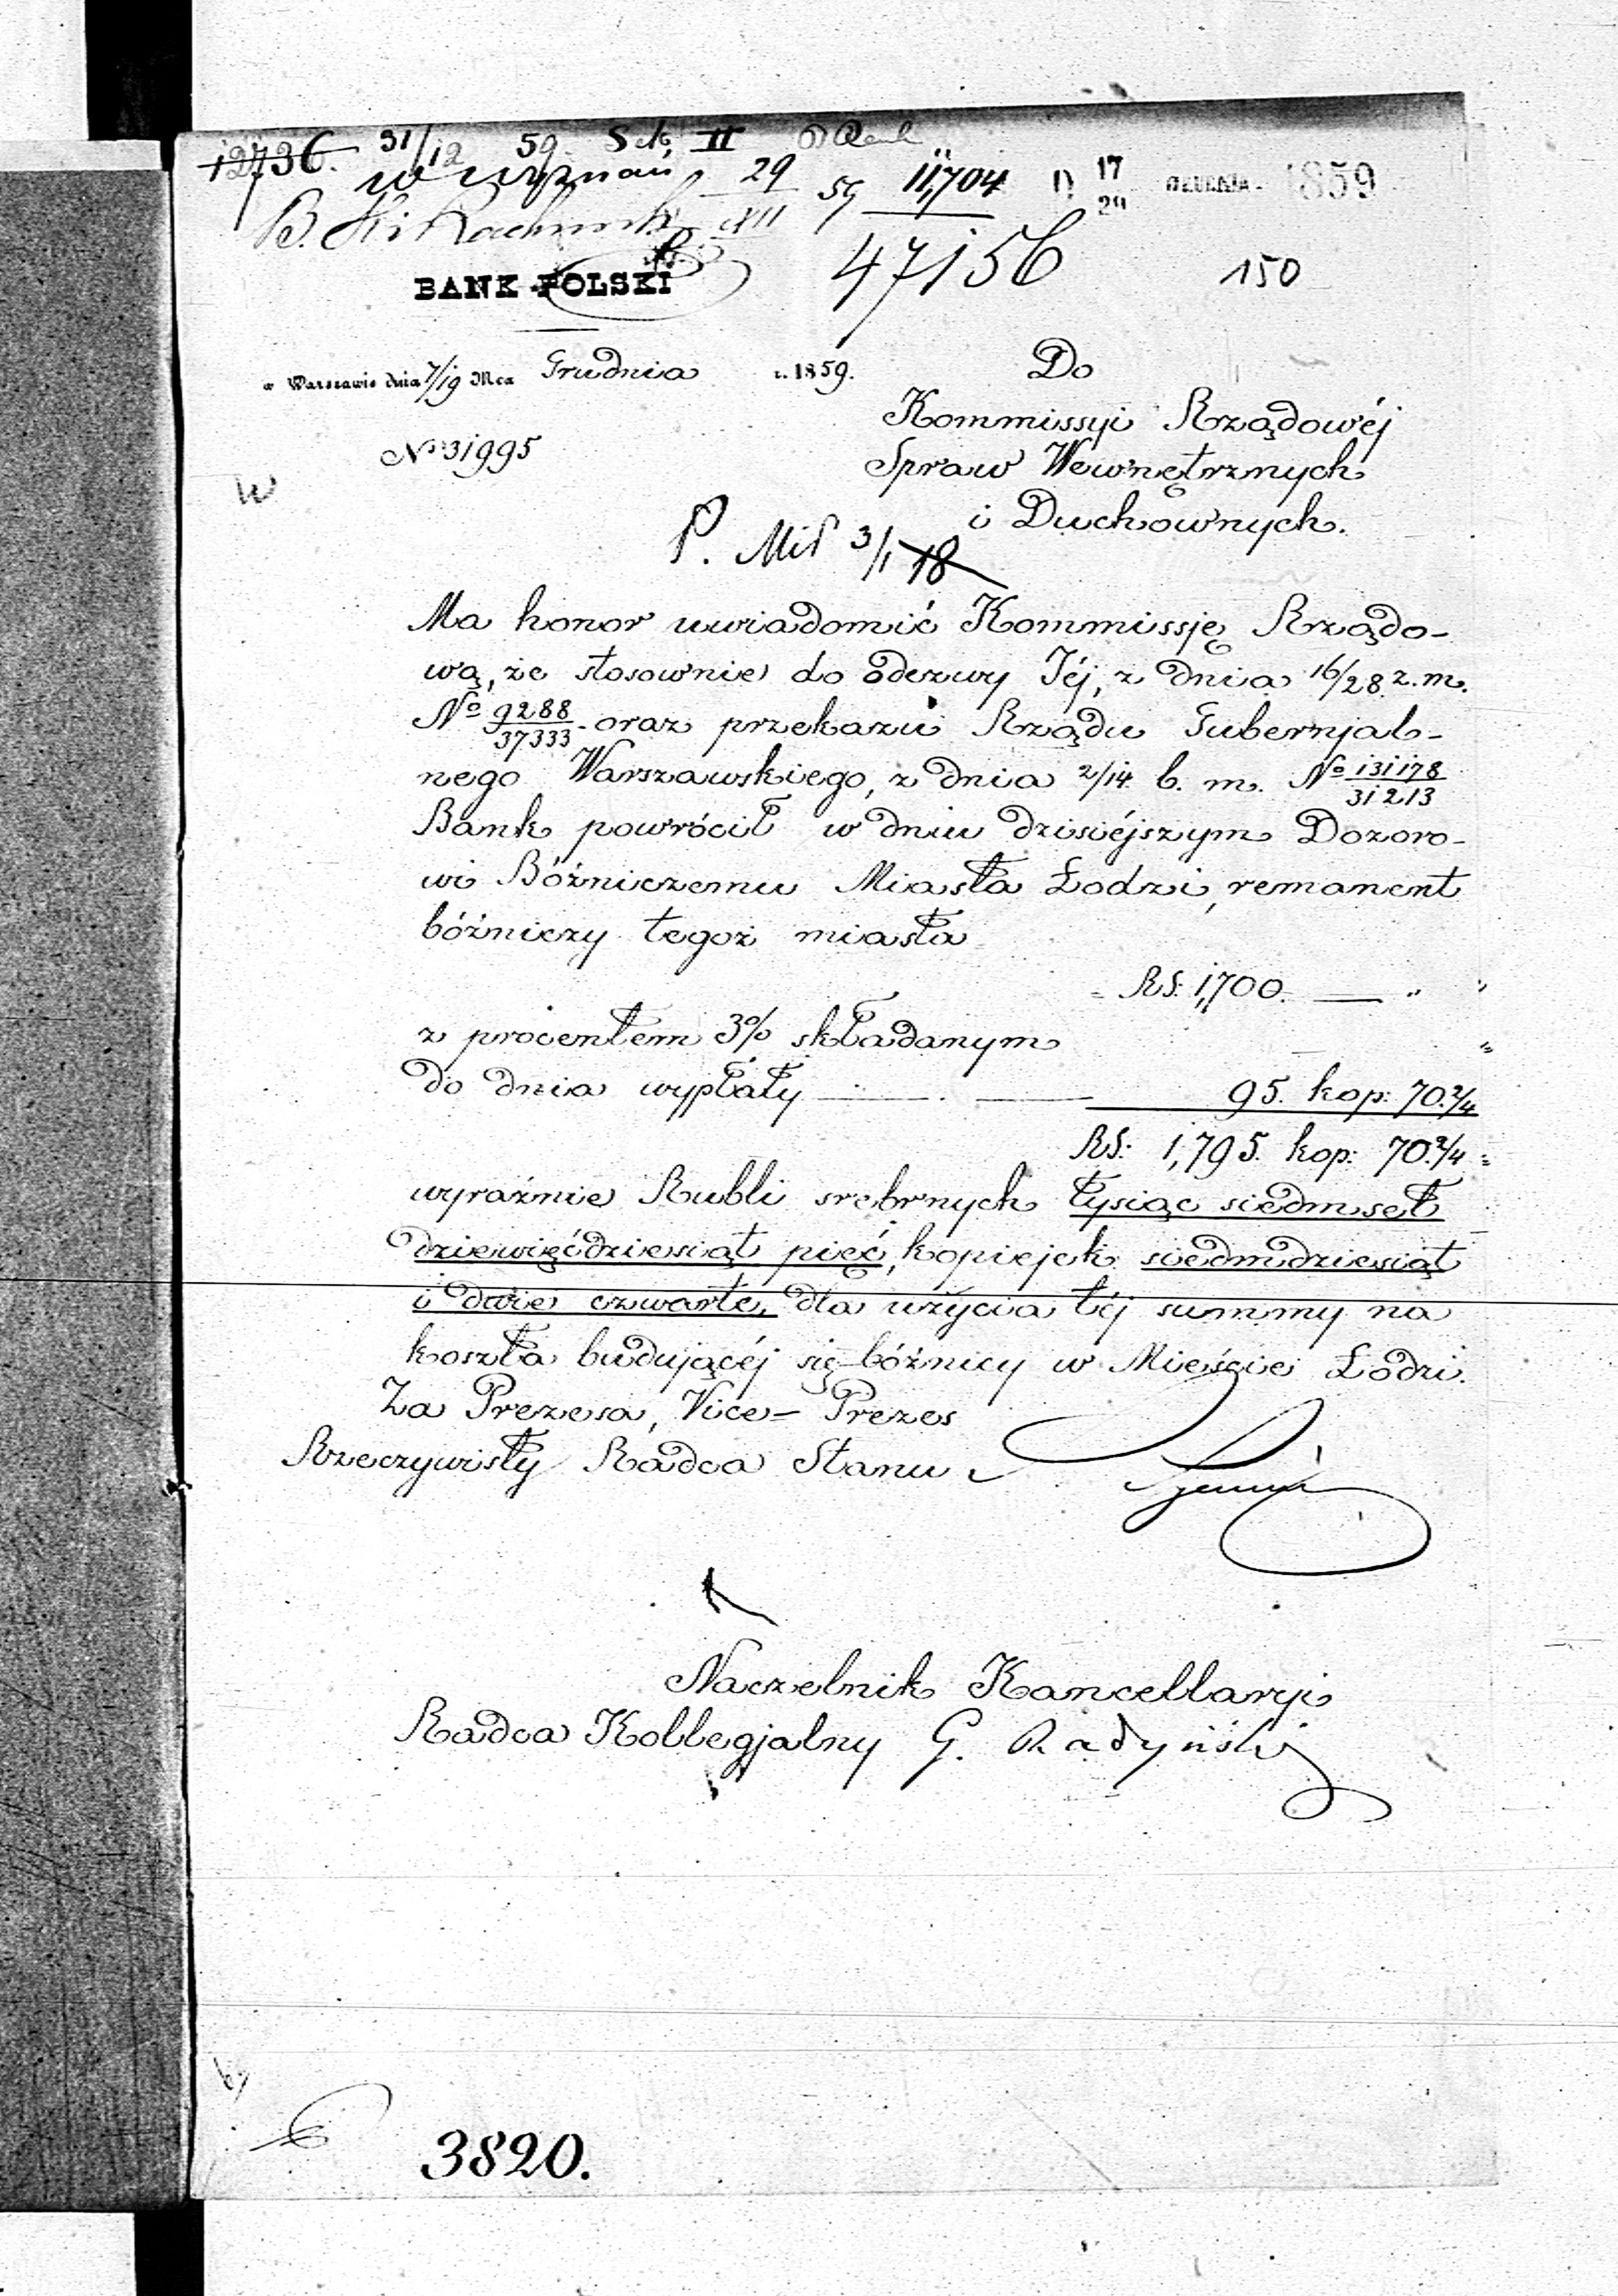 12736. 31/12 59. Sek. II
w wyznań 29 59 11,704 D. 17/29 GRUDNIA 1859
B. XII
47156 150
BANK POLSKI
w Warszawie dnia 7/19 Mca Grudnia r. 1859.
Do
Kommissyi Rządowéj
No 31995
Spraw Wewnętrznych
i Duchownych.
P. Mił 3/1 18
Ma honor uwiadomić Kommissję Rządo-
wą, że stosownie do odezwy Jéj, z dnia 16/28. z. m.
No 9288/37333 oraz przekazu Rządu Gubernjal-
nego Warszawskiego, z dnia 2/14. b. m. No 131178/31213
Bank powrócił w dniu dzisiéjszym Dozoro-
wi Bóżniczemu Miasta Łodzi, remanent
bóżniczy tegoż miasta
RS: 1,700. — "
z procentem 3% składanym
do dnia wypłaty — 95. kop: 70.2/4
RS: 1,795. kop: 70.2/4
wyraźnie Rubli srebrnych tysiąc siedmset
dziewięćdziesiąt pięć, kopiejek siedmdziesiąt
i dwie czwarte, dla użycia téj summy na
koszta budującéj się bóżnicy w Mieście Łodzi.
Za Prezesa, Vice-Prezes
Rzeczywisty Radca Stanu
Naczelnik Kancellaryi
Radca Kollegjalny G. Radyński
3820.